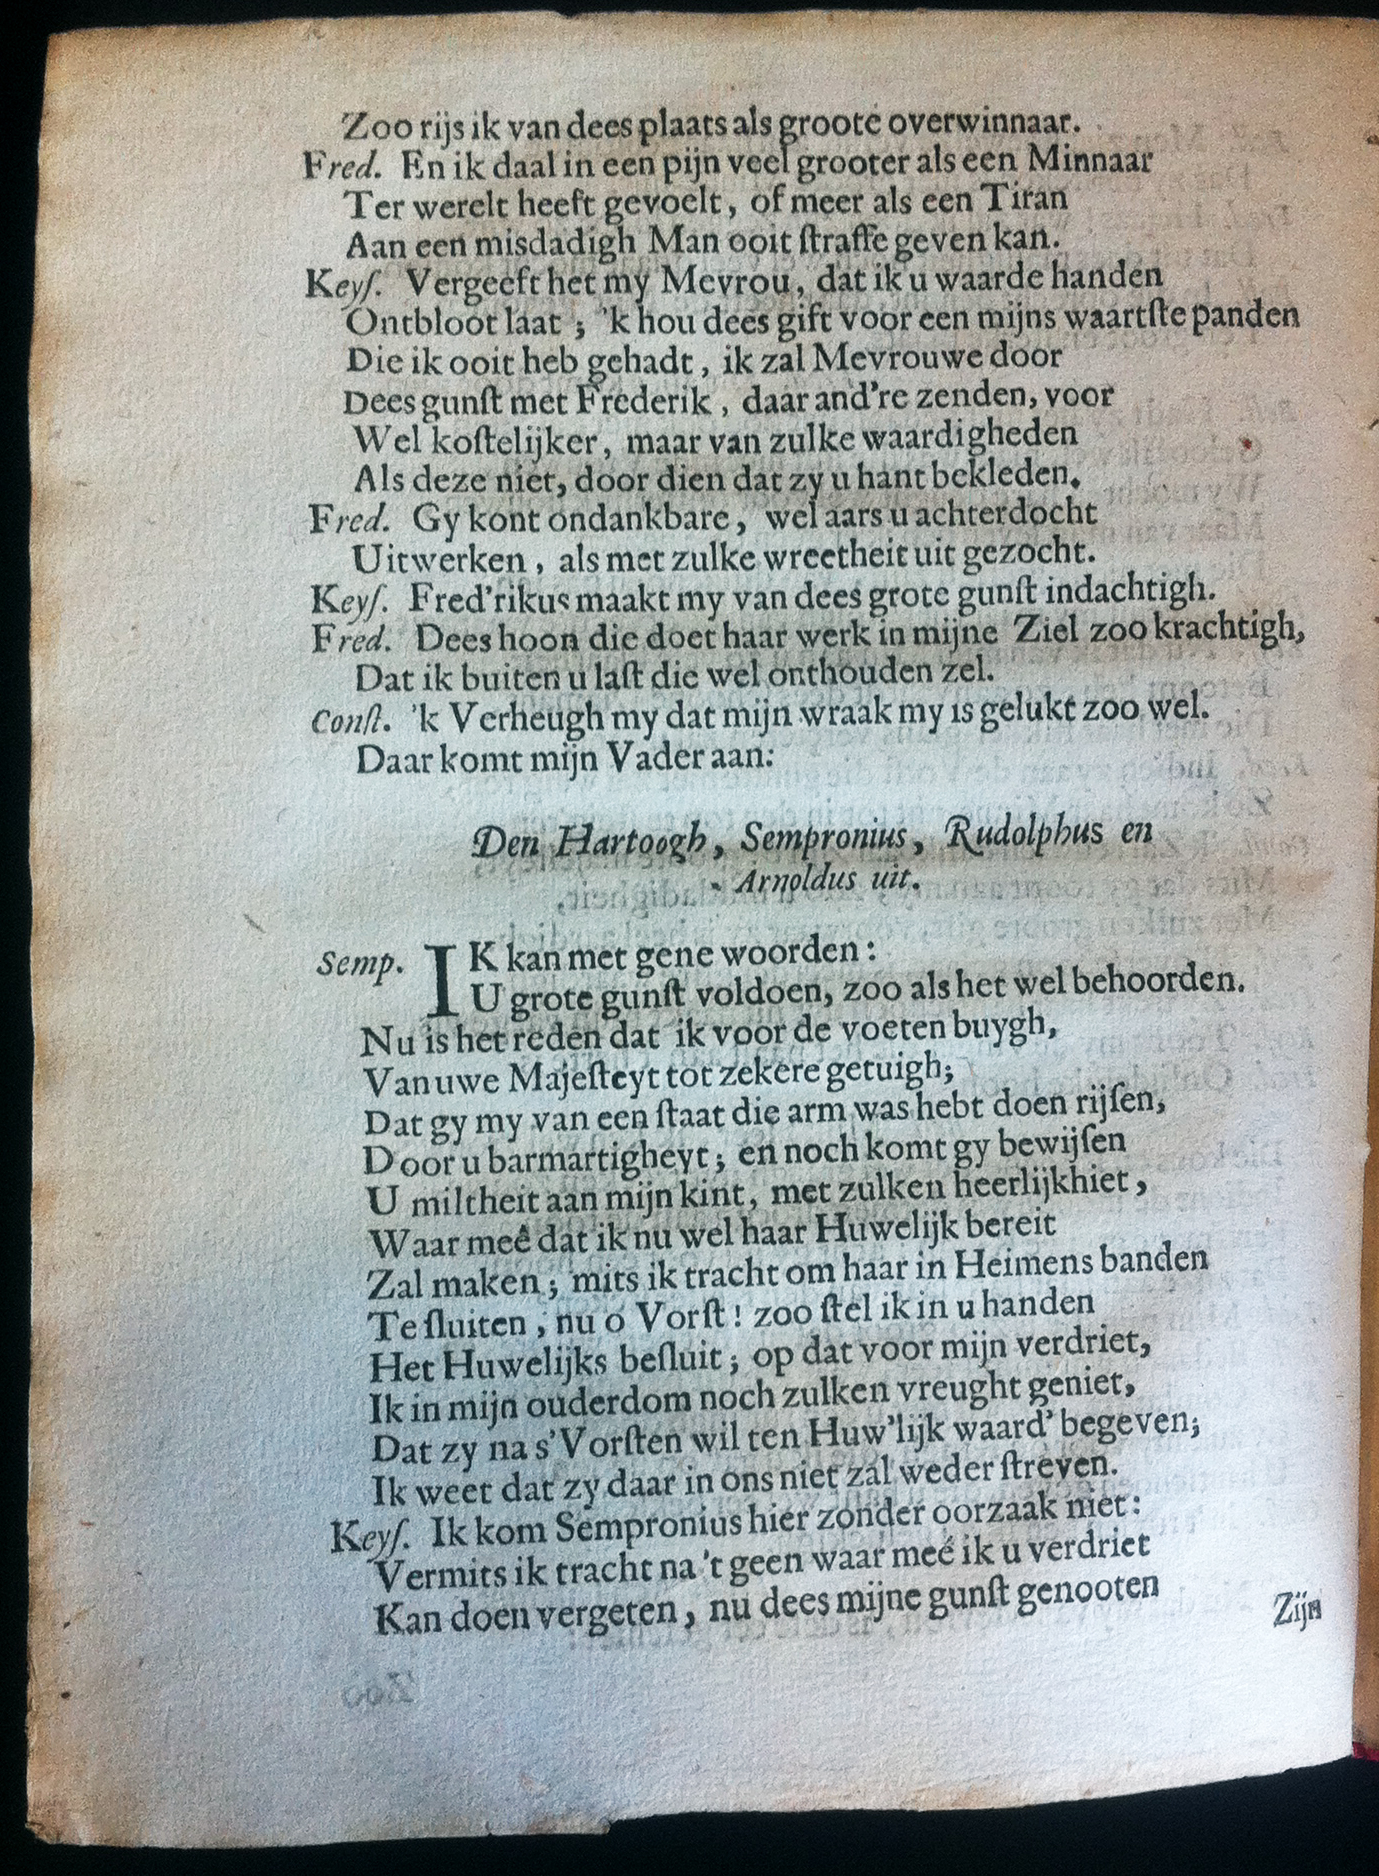 Zoo rijs ik van dees plaats als groote overwinnaar.
Fred. En ik daal in een pijn veel grooter als een Minnaar
Ter werelt heeft gevoelt, of meer als een Tiran
Aan een misdadigh Man ooit ſtraffe geven kan.
Keyſ. Vergeeft het my Mevrou, dat ik u waarde handen
Ontbloot laat; 'k hou dees gift voor een mijns waartſte panden
Die ik ooit heb gehadt, ik zal Mevrouwe door
Dees gunſt met Frederik, daar and're zenden, voor
Wel koſtelijker, maar van zulke waardigheden
Als deze niet, door dien dat zy u hant bekleden.
Fred. Gy kont ondankbare, wel aars u achterdocht
Uitwerken, als met zulke wreetheit uit gezocht.
Keyſ. Fred'rikus maakt my van dees grote gunſt indachtigh.
Fred. Dees hoon die doet haar werk in mijne Ziel zoo krachtigh,
Dat ik buiten u laſt die wel onthouden zel.
Conſt. 'k Verheugh my dat mijn wraak my is gelukt zoo wel.
Daar komt mijn Vader aan:
Den Hartoogh, Sempronius, Rudolphus en
Arnoldus uit.
Semp. IK kan met gene woorden:
U grote gunſt voldoen, zoo als het wel behoorden.
Nu is het reden dat ik voor de voeten buygh,
Van uwe Majeſteyt tot zekere getuigh;
Dat gy my van een ſtaat die arm was hebt doen rijſen,
Door u barmartigheyt; en noch komt gy bewijſen
U miltheit aan mijn kint, met zulken heerlijkhiet,
Waar meê dat ik nu wel haar Huwelijk bereit
Zal maken; mits ik tracht om haar in Heimens banden
Te ſluiten, nu o Vorſt! zoo ſtel ik in u handen
Het Huwelijks beſluit; op dat voor mijn verdriet,
Ik in mijn ouderdom noch zulken vreught geniet,
Dat zy na s'Vorſten wil ten Huw'lijk waard' begeven;
Ik weet dat zy daar in ons niet zal weder ſtreven.
Keyſ. Ik kom Sempronius hier zonder oorzaak niet:
Vermits ik tracht na 't geen waar meé ik u verdriet
Kan doen vergeten, nu dees mijne gunſt genooten
Zijn